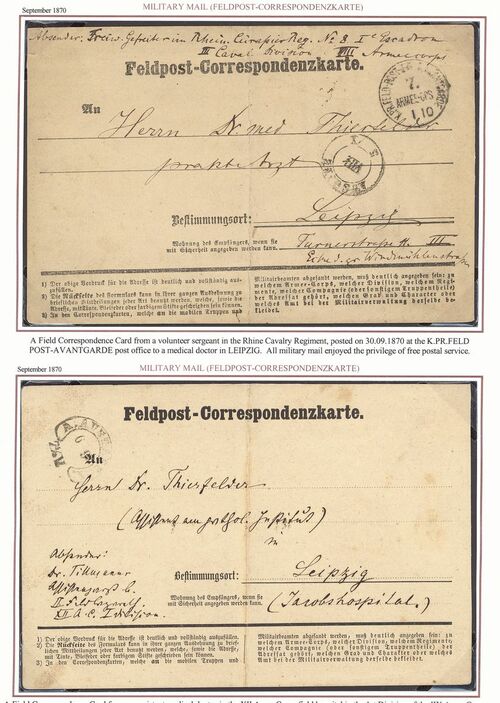 September 1870
MILITARY MAIL (FELDPOST-CORRESPONDENZKARTE)
Absender: Freiw. Gefreiter im Rhein. Cürassier Reg. No 8 1e Escadron
III Caval. Division. VIII Armeecorps
Feldpost-Correspondenzkarte.
An
K.PR.FELD-POST
7.
ARMEE-CPS
1.10
Herrn Dr med Thierfelder
prakt. Arzt
Bestimmungsort: Leipzig
Wohnung des Empfängers, wenn sie
mit Sicherheit angegeben werden kann.
Turnerstraße III
Ecke d. gr. Windmühlenstraße
1) Der obige Vordruck für die Adresse ist deutlich und vollständig auszufüllen.
2) Die Rückseite des Formulars kann in ihrer ganzen Ausdehnung zu brieflichen Mittheilungen jeder Art benutzt werden, welche, sowie die Adresse, mit Tinte, Bleifeder oder farbigem Stifte geschrieben sein können.
3) In den Correspondenzkarten, welche an die mobilen Truppen und
Militairbeamten abgesandt werden, muß deutlich angegeben sein: zu welchem Armee-Corps, welcher Division, welchem Regimente, welcher Compagnie (oder sonstigem Truppentheile) der Adressat gehört, welchen Grad und Charakter oder welches Amt bei der Militairverwaltung derselbe bekleidet.
A Field Correspondence Card from a volunteer sergeant in the Rhine Cavalry Regiment, posted on 30.09.1870 at the K.PR.FELD
POST-AVANTGARDE post office to a medical doctor in LEIPZIG. All military mail enjoyed the privilege of free postal service.
September 1870
MILITARY MAIL (FELDPOST-CORRESPONDENZKARTE)
Feldpost-Correspondenzkarte.
An
Herrn Dr. Thierfelder
(Assistent am pathol. Institut)
in
Absender:
Dr. Tillmanns
Assistenzarzt b.
II Feldlazareth
XII A. C. I Division.
Bestimmungsort: Leipzig
Wohnung des Empfängers, wenn sie
mit Sicherheit angegeben werden kann.
(Jacobshospital.)
1) Der obige Vordruck für die Adresse ist deutlich und vollständig auszufüllen.
2) Die Rückseite des Formulars kann in ihrer ganzen Ausdehnung zu brieflichen Mittheilungen jeder Art benutzt werden, welche, sowie die Adresse, mit Tinte, Bleifeder oder farbigem Stifte geschrieben sein können.
3) In den Correspondenzkarten, welche an die mobilen Truppen und
Militairbeamten abgesandt werden, muß deutlich angegeben sein: zu welchem Armee-Corps, welcher Division, welchem Regiment, welcher Compagnie (oder sonstigem Truppentheile) der Adressat gehört, welchen Grad und Charakter oder welches Amt bei der Militairverwaltung derselbe bekleidet.